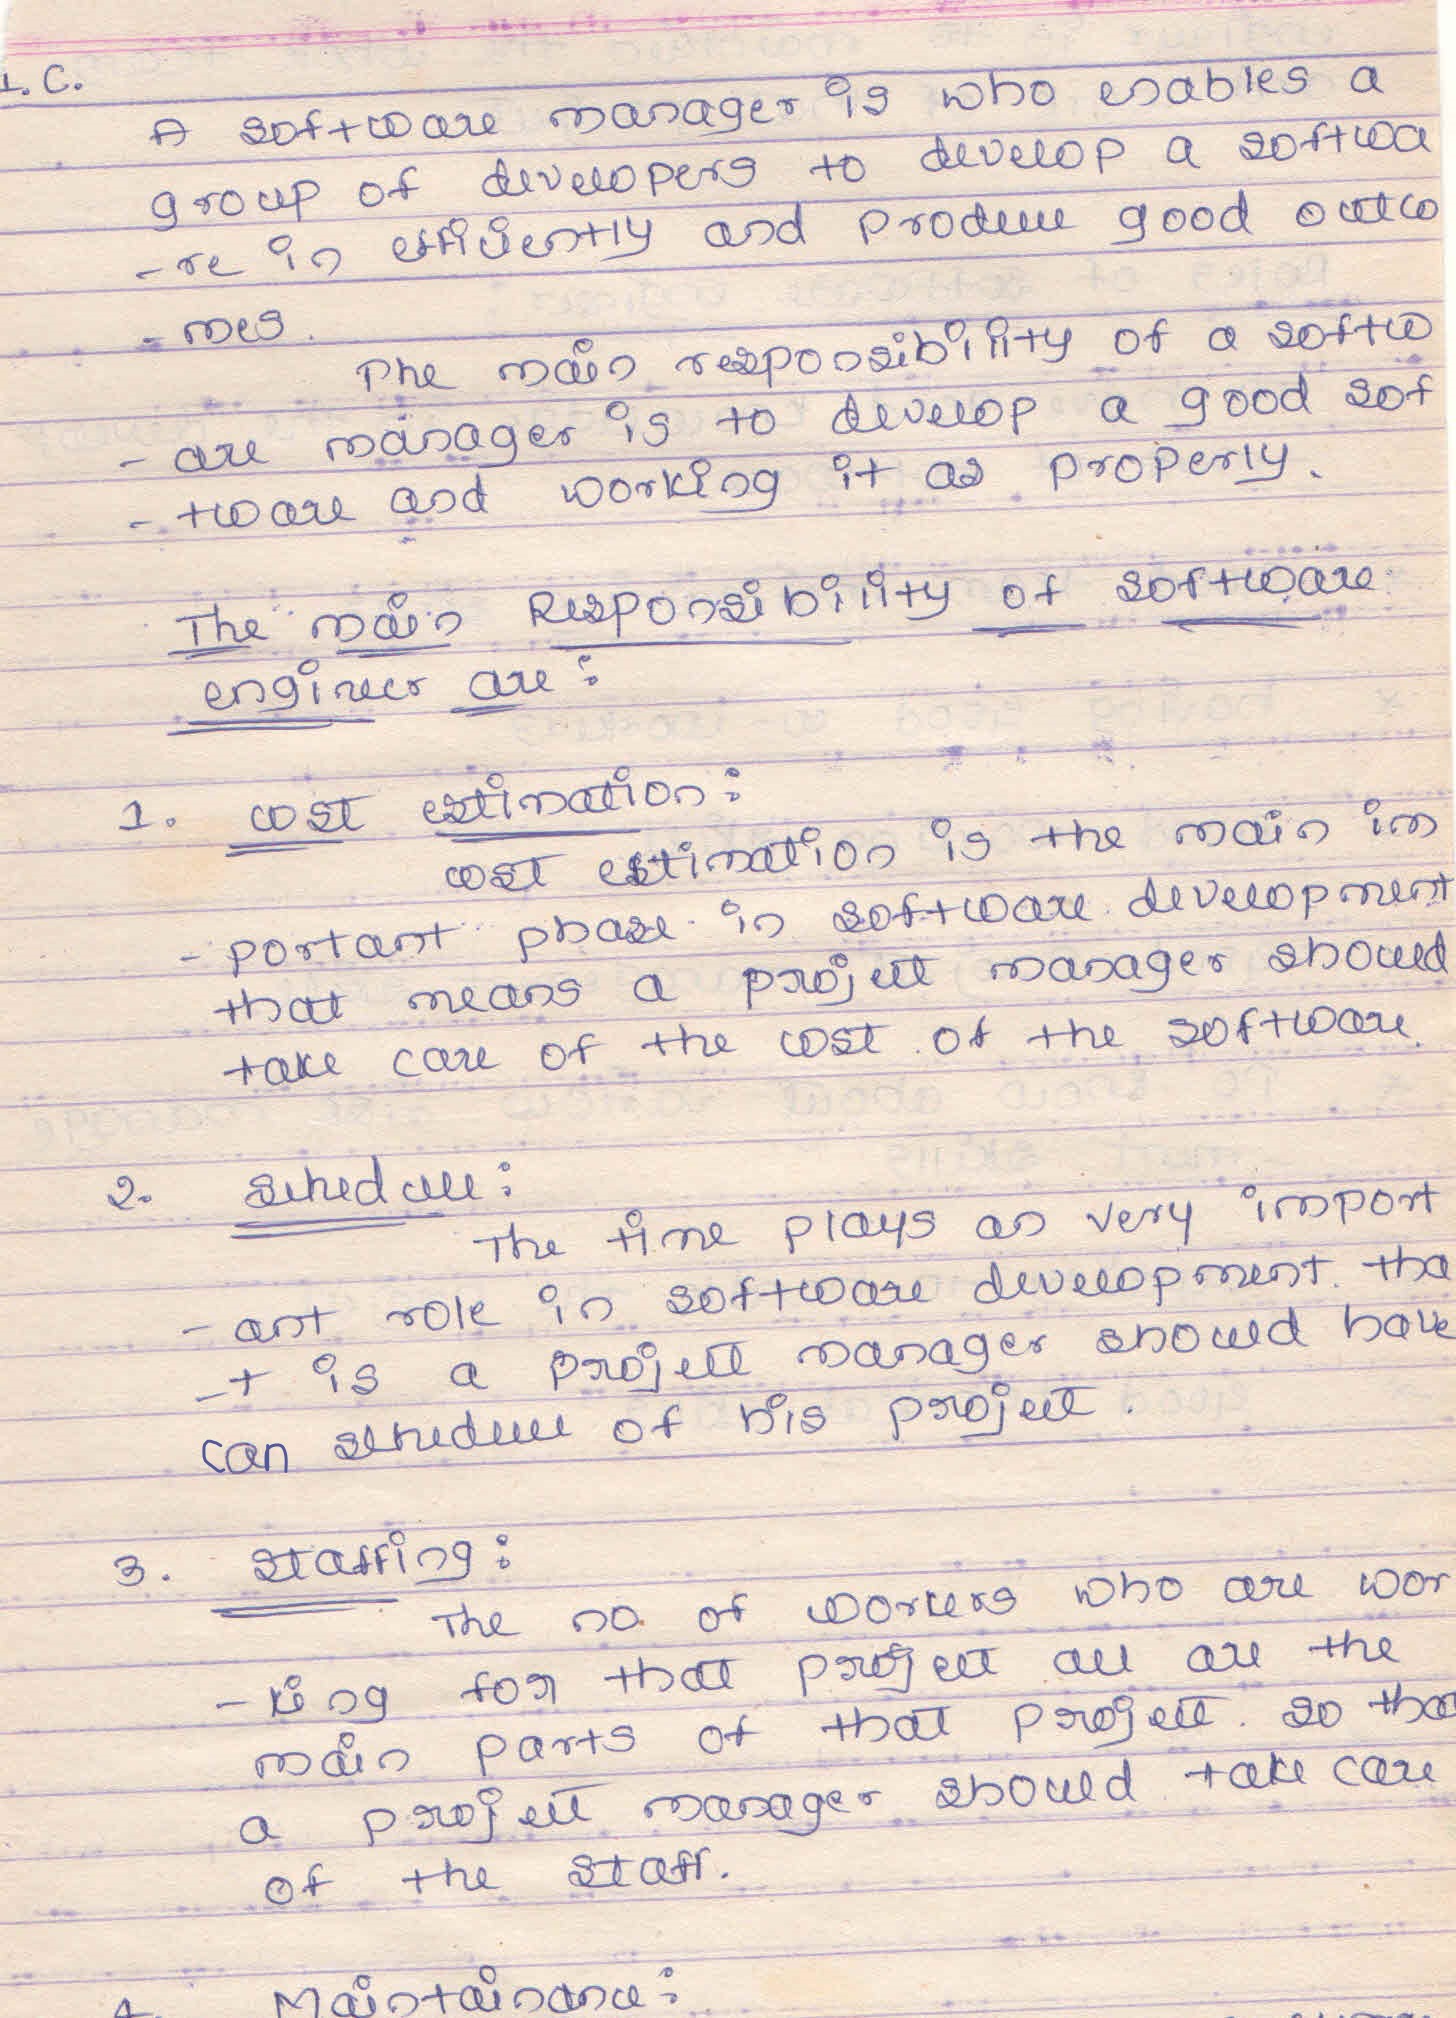 1. C.
A software manager is who enables a
group of developers to develop a softwa
- re in efficiently and produce good outco
- mes.
The main responsibility of a softw
- are manager is to develop a good sof
- tware and working it as properly.
The main Responsibility of software
engineer are:
1. cost estimation:
cost estimation is the main im
- portant phase in software development
that means a project manager should
take care of the cost of the software.
2. schedule:
The time plays an very import
- ant role in software development. tha
- t is a project manager should have
can schedule of his project.
3. staffing:
The no. of workers who are wor
- king for that project all are the
main parts of that project. so that
a project manager should take care
of the staff.
4. Maintainance: